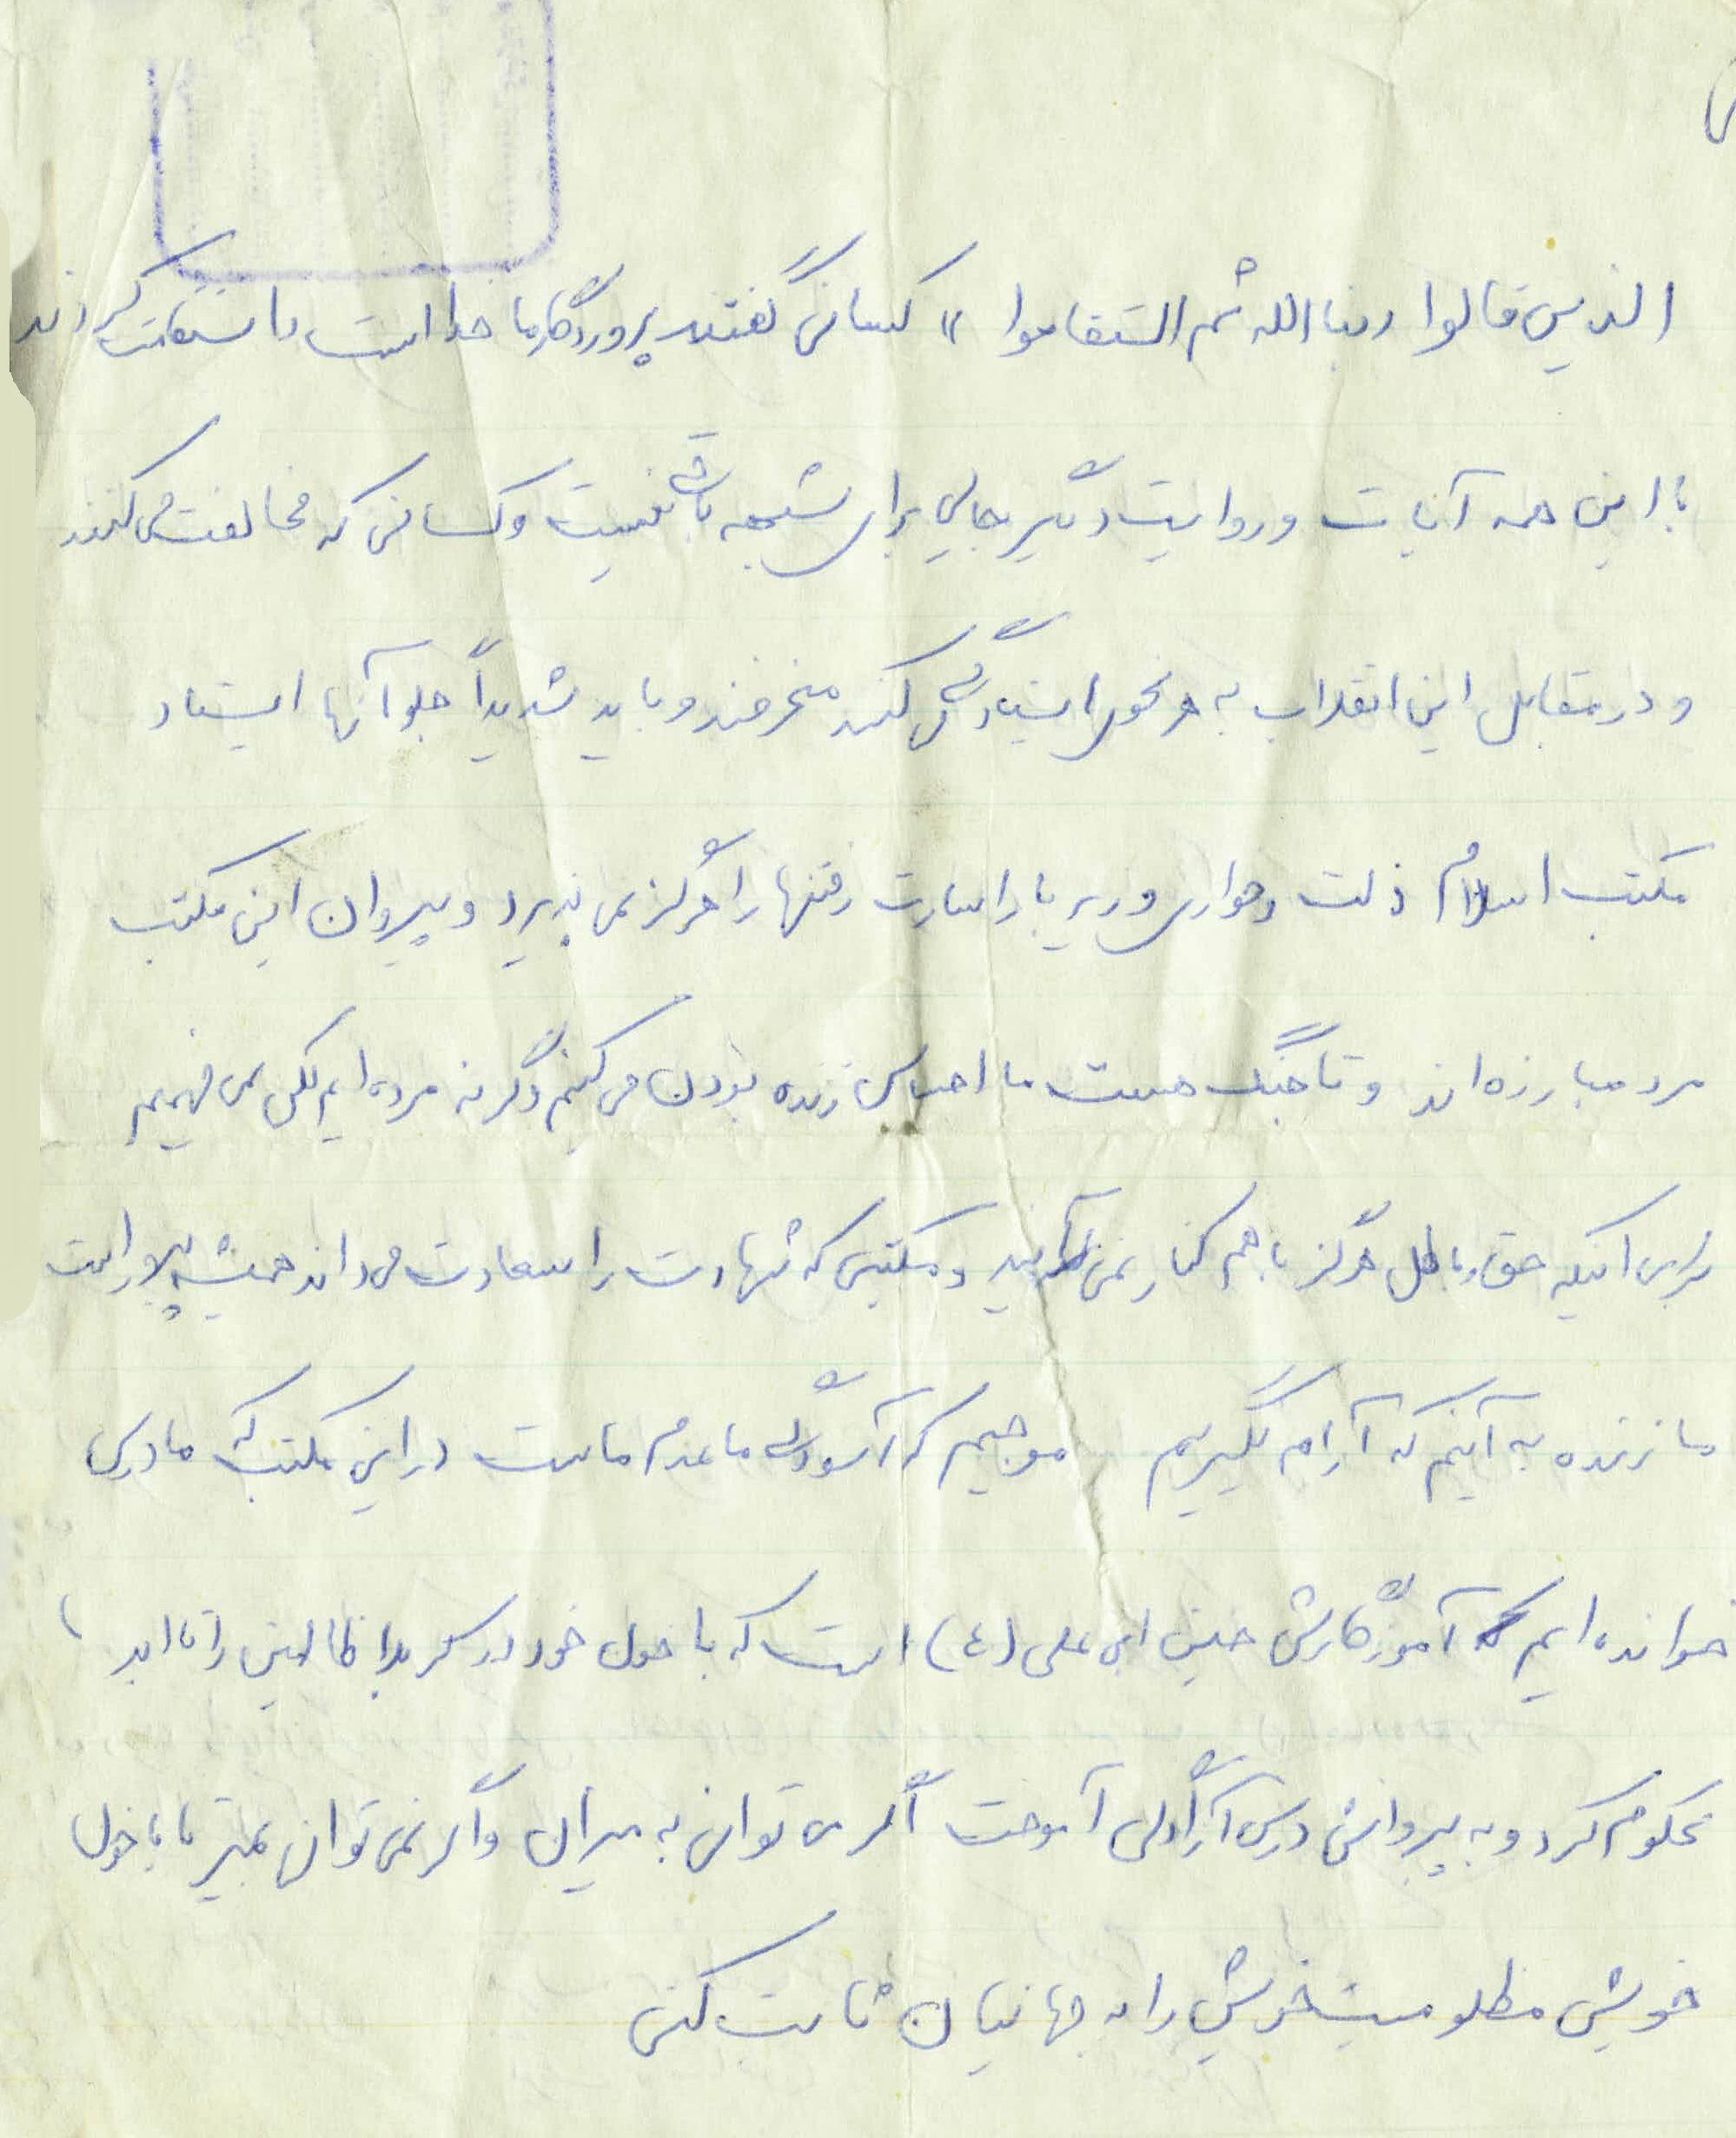 الذین قالوا ربنا الله ثم استقاموا " کسانی گفتند پروردگار ما خدا است و استقامت کردند
با این همه آیات و روایت دیگر جایی برای شبهه باقی نیست و کسانی که مخالفت می کنند
و در مقابل این انقلاب به هر نحوی ایستادگی می کنند منحرفند و باید شدیداً جلو آنها ایستاد
مکتب اسلام ذلت و خواری و زیر بار اسارت رفتنها را هرگز نمی پذیرد و پیروان این مکتب
مرد مبارزه اند و تا جنگ هست ما احساس زنده بودن می کنیم وگر نه مرده ایم لکی نمی فهمیم
برای اینکه حق و باطل هرگز با هم کنار نمی آیند و مکتبی که شهادت را سعادت می داند همیشه پیروز است
ما زنده به آنیم که آرام نگیریم موجیم که آسودگی ما عدم ماست در این مکتب که ما درس
خوانده ایم که آموزگارش حسین ابن علی (ع) است که با خون خود در کربلا ظالمین را تا ابد
محکوم کرد و به پیروانش درس آزادگی آموخت اگر می توانی به میران و اگر نمی توان بمیر تا با خون
خویش مظلومیت خویش را به جهانیان ثابت کنی